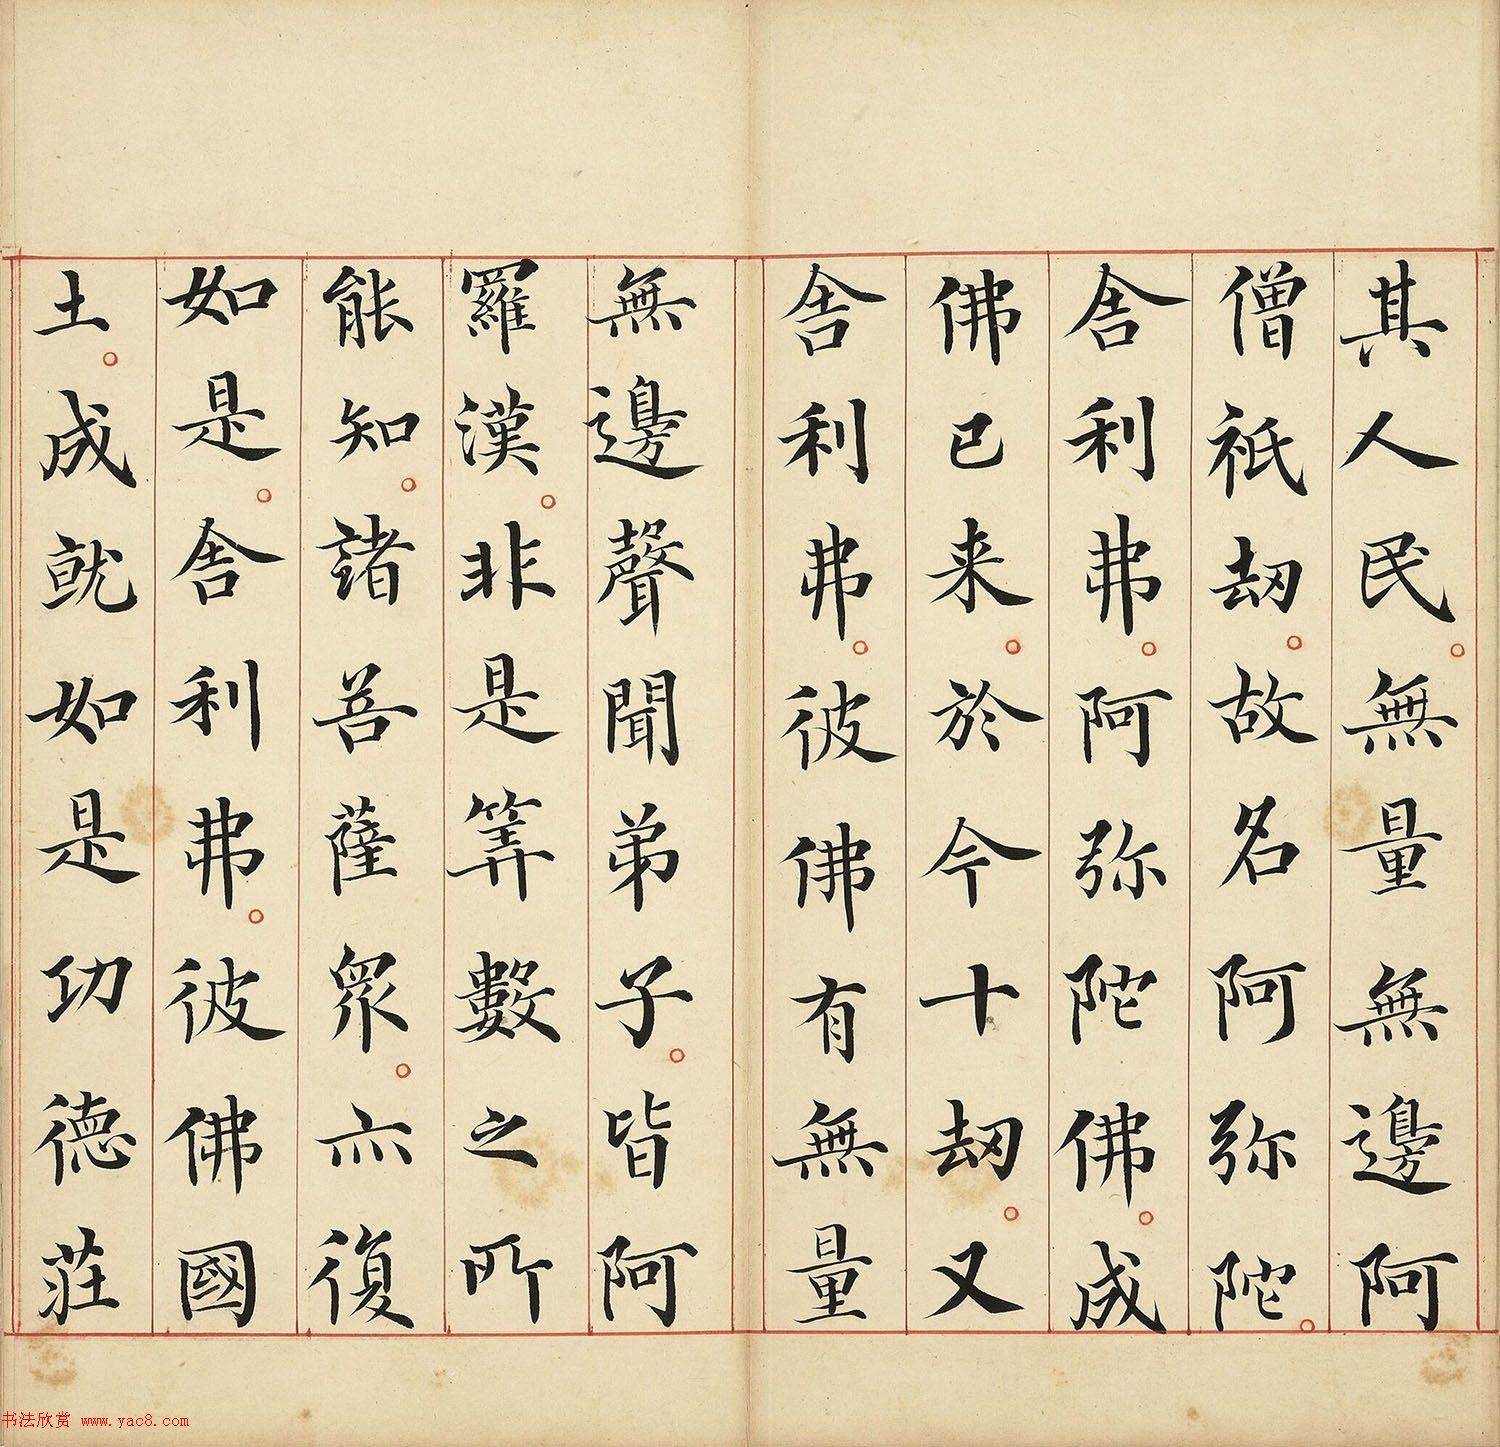 其人民。無量無邊阿
僧祇劫。故名阿弥陀。
舍利弗。阿弥陀佛。成
佛已来。於今十劫。又
舍利弗。彼佛有無量
無邊聲聞弟子。皆阿
羅漢。非是筭數之所
能知。諸菩薩眾。亦復
如是。舍利弗。彼佛國
土。成就如是功德莊
书法欣赏 www.yac8.com